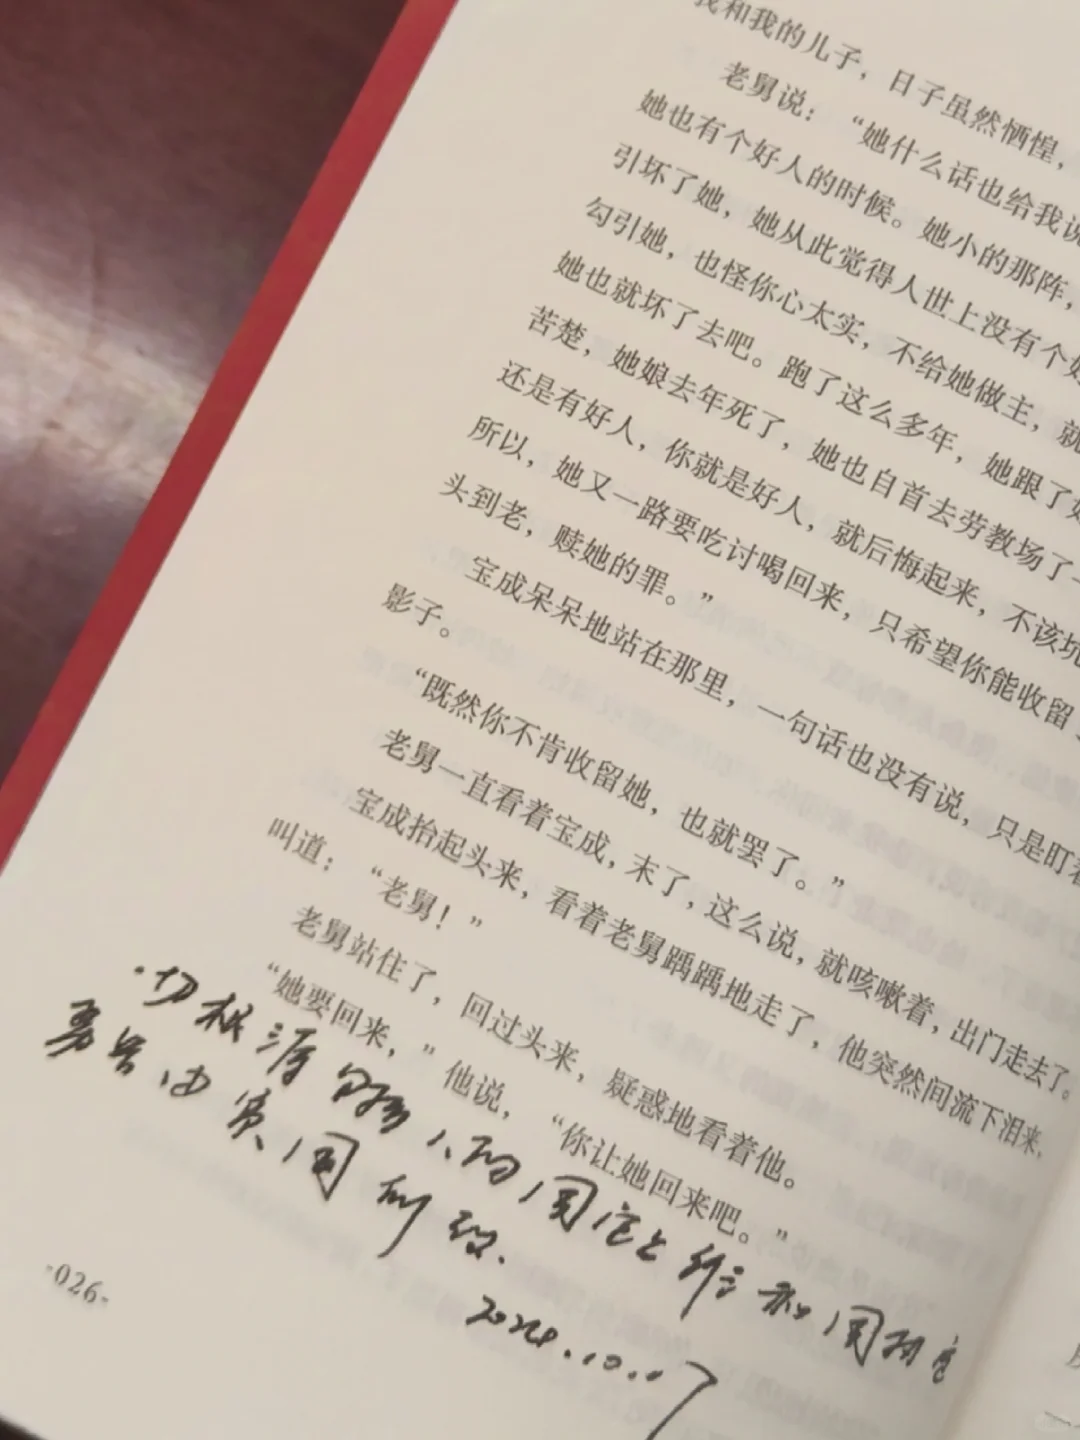 我和我的儿子，日子虽然恓惶，
老舅说：“她什么话也给我说
她也有个好人的时候。她小的那阵，
引坏了她，她从此觉得人世上没有个好
勾引她，也怪你心太实，不给她做主，就
她也就坏了去吧。跑了这么多年，她跟了好
苦楚，她娘去年死了，她也自首去劳教场了一
还是有好人，你就是好人，就后悔起来，不该坑
所以，她又一路要吃讨喝回来，只希望你能收留
头到老，赎她的罪。”
宝成呆呆地站在那里，一句话也没有说，只是盯着
影子。
“既然你不肯收留她，也就罢了。”
老舅一直看着宝成，末了，这么说，就咳嗽着，出门走去了。
宝成抬起头来，看着老舅踽踽地走了，他突然间流下泪来，
叫道：“老舅！”
老舅站住了，回过头来，疑惑地看着他。
“她要回来，”他说，“你让她回来吧。”
切根源
人的
和
2024.10.07
-026-